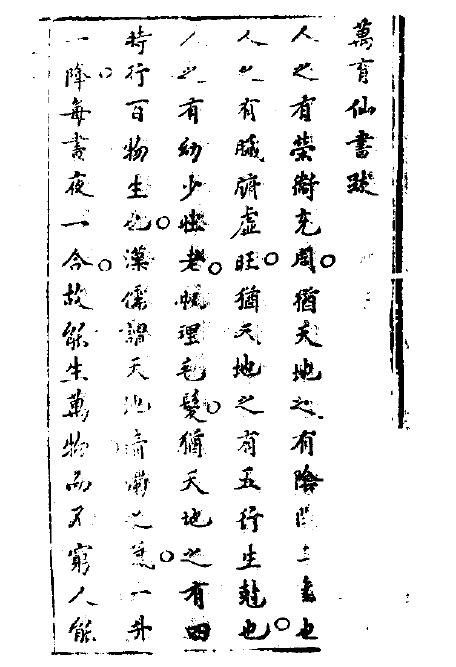 萬育仙書跋
人之有榮衛充周猶天地之有陰陽二氣也
人之有臟腑虛旺猶天地之有五行生剋也
人之有幼少壯老帆理毛髮猶天地之有四
時行百物生也漢儒謂天地清濁之氣一升
一降每晝夜一合故能生萬物而不窮人能